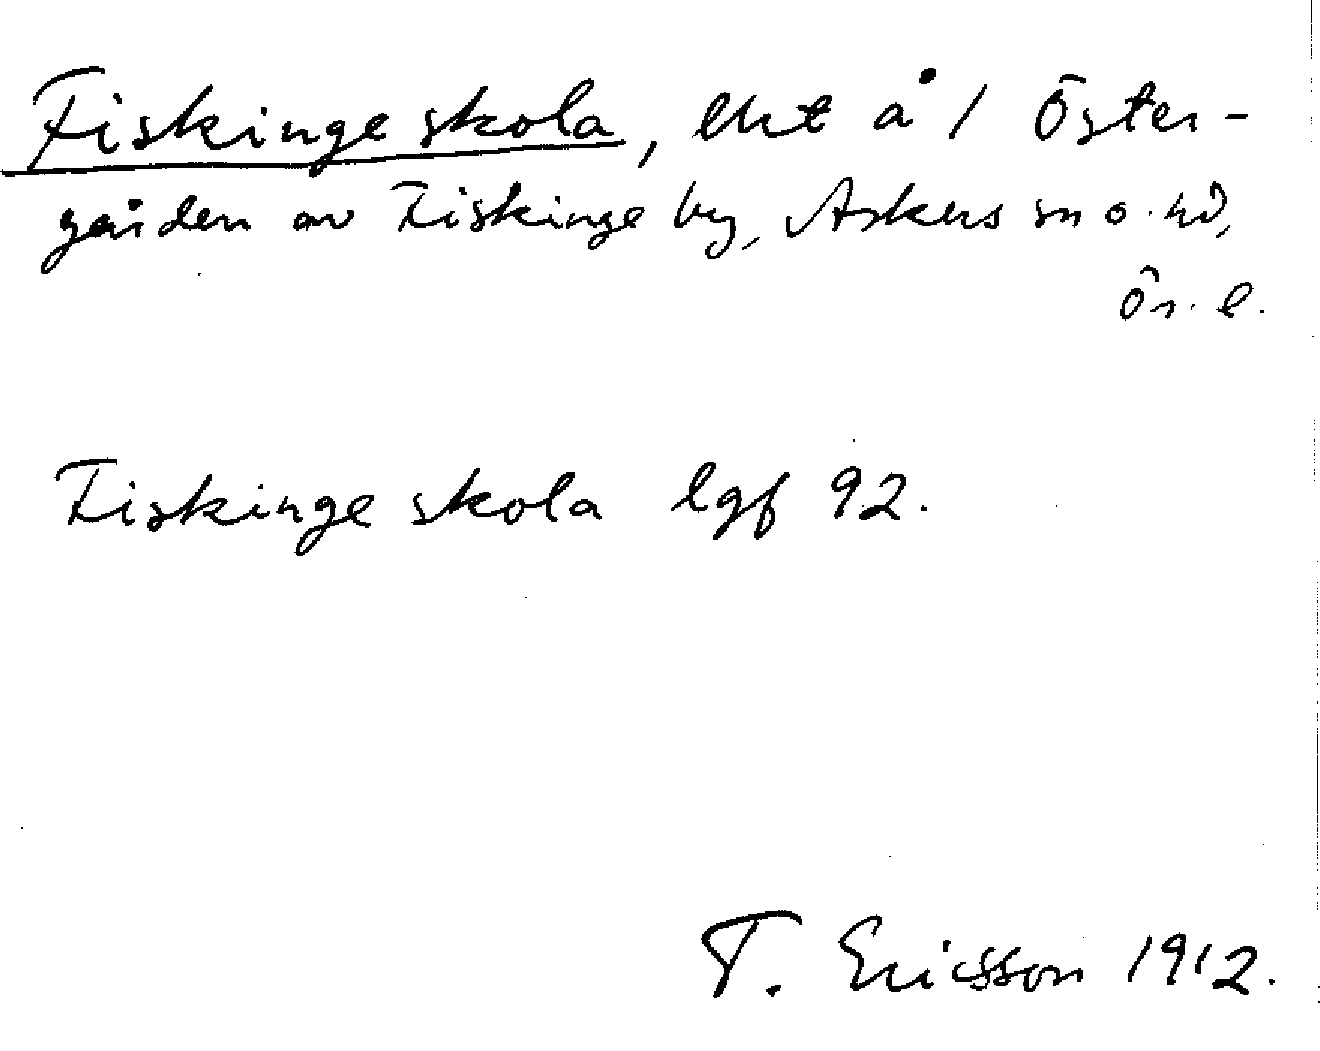 Fiskinge skola, lht å 1 Öster-
gården av Fiskinge by, Askers sn o. hd,
Ör. l.
Fiskinge skola lgf 92.
T. Ericsson 1912.